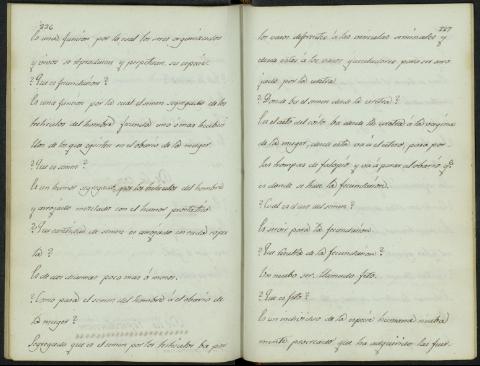 226
Es una funcion por la cual los seres organizados
y vivos se reproducen y perpetuan su especie.
? Que es fecundacion?
Es una funcion por la cual el semen segregado de los
testiculos del hombre fecunda uno ó mas huebeci
llos de los que existen en el obario de la muger.
? Que es semen?
Es un humor segregado por los testiculos del hombre
y arrojado mezclado con el humor prostatico.
? Que cantidad de semen es arrojado en cada copu
la?
Es de dos dracmas poco mas ó menos.
? Como pasa el semen del hombre á el obario de
la muger?
Segregado que es el semen por los testiculos ba por
227
los vasos deferentes á las vesiculas seminales y
desde estas á los vasos eyaculadores para ser arro
jado por la uretra.
? Donde ba el semen desde la uretra?
En el acto del coito ba desde la uretra á la vagina
de la muger, desde esta va á el utero, pasa por
las trompas de falopio y va á parar al obario q.e
es donde se hace la fecundacion.
? Cual es el uso del semen?
Es servir para la fecundacion.
? Que resulta de la fecundacion?
Un nuebo ser, llamado feto.
? Que es feto?
Es un individuo de la especie humana nueba
mente procreado, que ha adquirido las fuer.